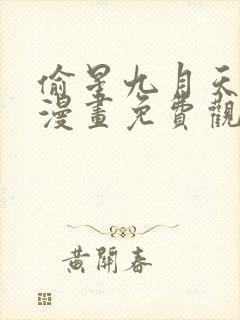 偷星九月天
漫畫免費觀
黃開春